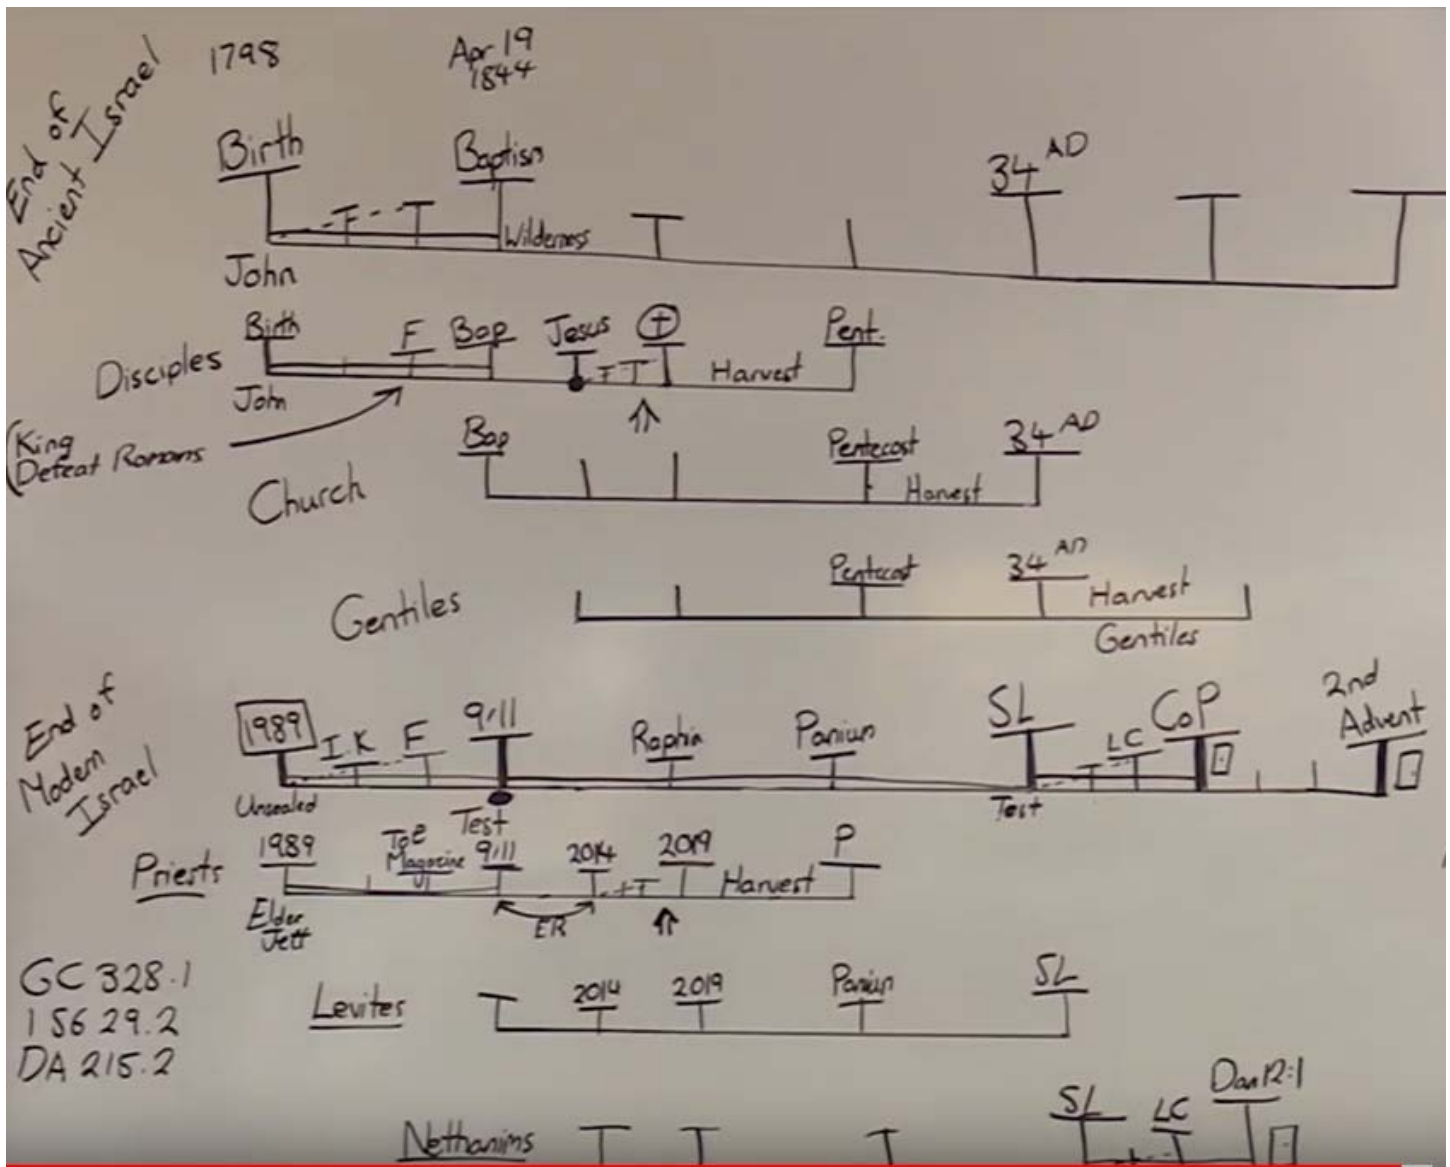 1798
Apr 19
1844
End of
Ancient Israel
Birth
Baptism
34 AD
F T
Wilderness
John
Disciples
Birth
F
Bap
Jesus
Pent.
F T
Harvest
John
(King
Defeat Romans
Church
Bap
Pentecost
34 AD
Harvest
Gentiles
Pentecost
34 AD
Harvest
Gentiles
End of
Modern
Israel
1989
I.K
F
9/11
Raphia
Panium
SL
LC
CoP
2nd
Advent
Unsealed
Test
Test
Priests
1989
ToE
Magazine
9/11
2014
2019
P
Harvest
Elder
Jeff
ER
GC 328.1
1SG 29.2
DA 215.2
Levites
2014
2019
Panium
SL
Nethanims
SL
LC
Dan 12:1